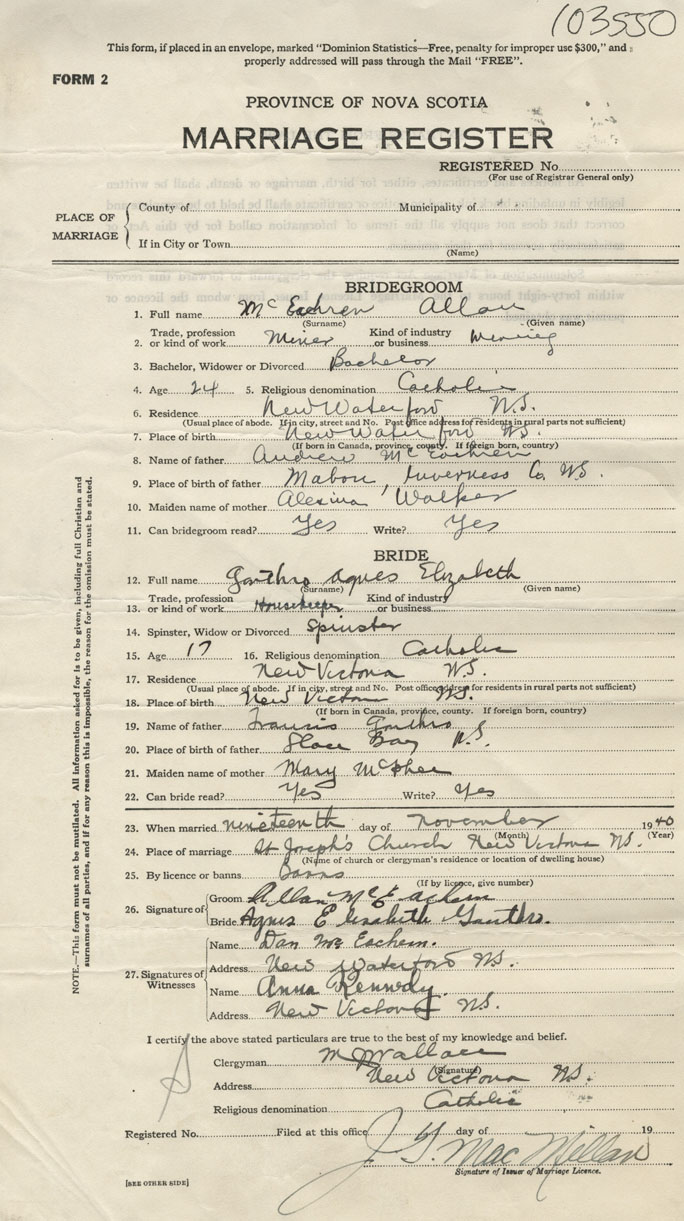 103550
This form, if placed in an envelope, marked "Dominion Statistics—Free, penalty for improper use $300," and
properly addressed will pass through the Mail "FREE".
FORM 2
PROVINCE OF NOVA SCOTIA
MARRIAGE REGISTER
REGISTERED No.
(For use of Registrar General only)
PLACE OF MARRIAGE
County of Municipality of
If in City or Town
(Name)
BRIDEGROOM
1. Full name McEachren Allan
(Surname) (Given name)
2. Trade, profession or kind of work Miner Kind of industry or business Mining
3. Bachelor, Widower or Divorced Bachelor
4. Age 24 5. Religious denomination Catholic
6. Residence New Waterford N.S.
(Usual place of abode. If in city, street and No. Post office address for residents in rural parts not sufficient)
7. Place of birth New Waterford N.S.
(If born in Canada, province, county. If foreign born, country)
8. Name of father Andrew McEachren
9. Place of birth of father Mabou, Inverness Co. N.S.
10. Maiden name of mother Alexina Walker
11. Can bridegroom read? Yes Write? Yes
BRIDE
12. Full name Gouthro Agnes Elizabeth
(Surname) (Given name)
13. Trade, profession or kind of work Housekeeper Kind of industry or business
14. Spinster, Widow or Divorced Spinster
15. Age 17 16. Religious denomination Catholic
17. Residence New Victoria N.S.
(Usual place of abode. If in city, street and No. Post office address for residents in rural parts not sufficient)
18. Place of birth New Victoria N.S.
(If born in Canada, province, county. If foreign born, country)
19. Name of father Francis Gouthro
20. Place of birth of father Glace Bay N.S.
21. Maiden name of mother Mary McPhee
22. Can bride read? Yes Write? Yes
23. When married nineteenth day of November 1940
(Month) (Year)
24. Place of marriage St Joseph's Church New Victoria N.S.
(Name of church or clergyman's residence or location of dwelling house)
25. By licence or banns Banns
(If by licence, give number)
26. Signature of
Groom Allan McEachern
Bride Agnes Elizabeth Gouthro.
27. Signatures of Witnesses
Name Dan McEachern.
Address New Waterford N.S.
Name Anna Kennedy.
Address New Victoria N.S.
I certify the above stated particulars are true to the best of my knowledge and belief.
Clergyman Wallace
(Signature)
Address New Victoria N.S.
Religious denomination Catholic
Registered No. Filed at this office day of 19
J. MacMillan
Signature of Issuer of Marriage Licence.
[SEE OTHER SIDE]
NOTE.—This form must not be mutilated. All information asked for is to be given, including full Christian and
surnames of all parties, and if for any reason this is impossible, the reason for the omission must be stated.